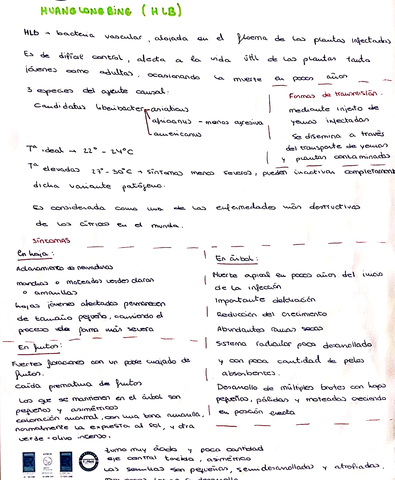 HUANGLONGBING (HLB)
HLB → bacteria vascular, alojada en el floema de las plantas infectadas
Es de difícil control, afecta a la vida útil de las plantas tanto
jóvenes como adultas, ocasionando la muerte en pocos años
3 especies del agente causal:
Candidatus liberibacter asiaticus
africanus - menos agresiva
americanus
Formas de transmisión:
mediante injerto de
yemas infectadas
Se disemina a través
del transporte de yemas
y plantas contaminadas
Tª ideal → 22º - 24ºC
Tª elevadas 27º - 30ºC → síntomas menos severos, pueden inactivar completamente
dicha variante patógeno.
Es considerada como una de las enfermedades más destructivas
de los cítricos en el mundo.
SÍNTOMAS
En hoja:
Aclaramiento de nervaduras
manchas o moteados verdes claros
o amarillas
hojas jóvenes afectadas permanecen
de tamaño pequeño,
proceso de forma más severa
En frutos:
Fuertes floraciones con un pobre cuajado de
frutos.
caída prematura de frutos
Los que se mantienen en el árbol son
pequeños y asimétricos
coloración anormal, con una zona amarilla,
normalmente la expuesta al sol, y otra
verde-olivo
zumo muy ácido y poca cantidad
eje central torcido, asimétrico
Las semillas son pequeñas, semidesarrolladas y atrofiadas,
En árbol:
Muerte apical en pocos años del inicio
de la infección
Importante defoliación
Reducción del crecimiento
Abundantes ramas secas
Sistema radicular poco desarrollado
y con poca cantidad de pelos
absorbentes.
Desarrollo de múltiples brotes con hojas
pequeñas, pálidas y moteadas creciendo
en posición erecta